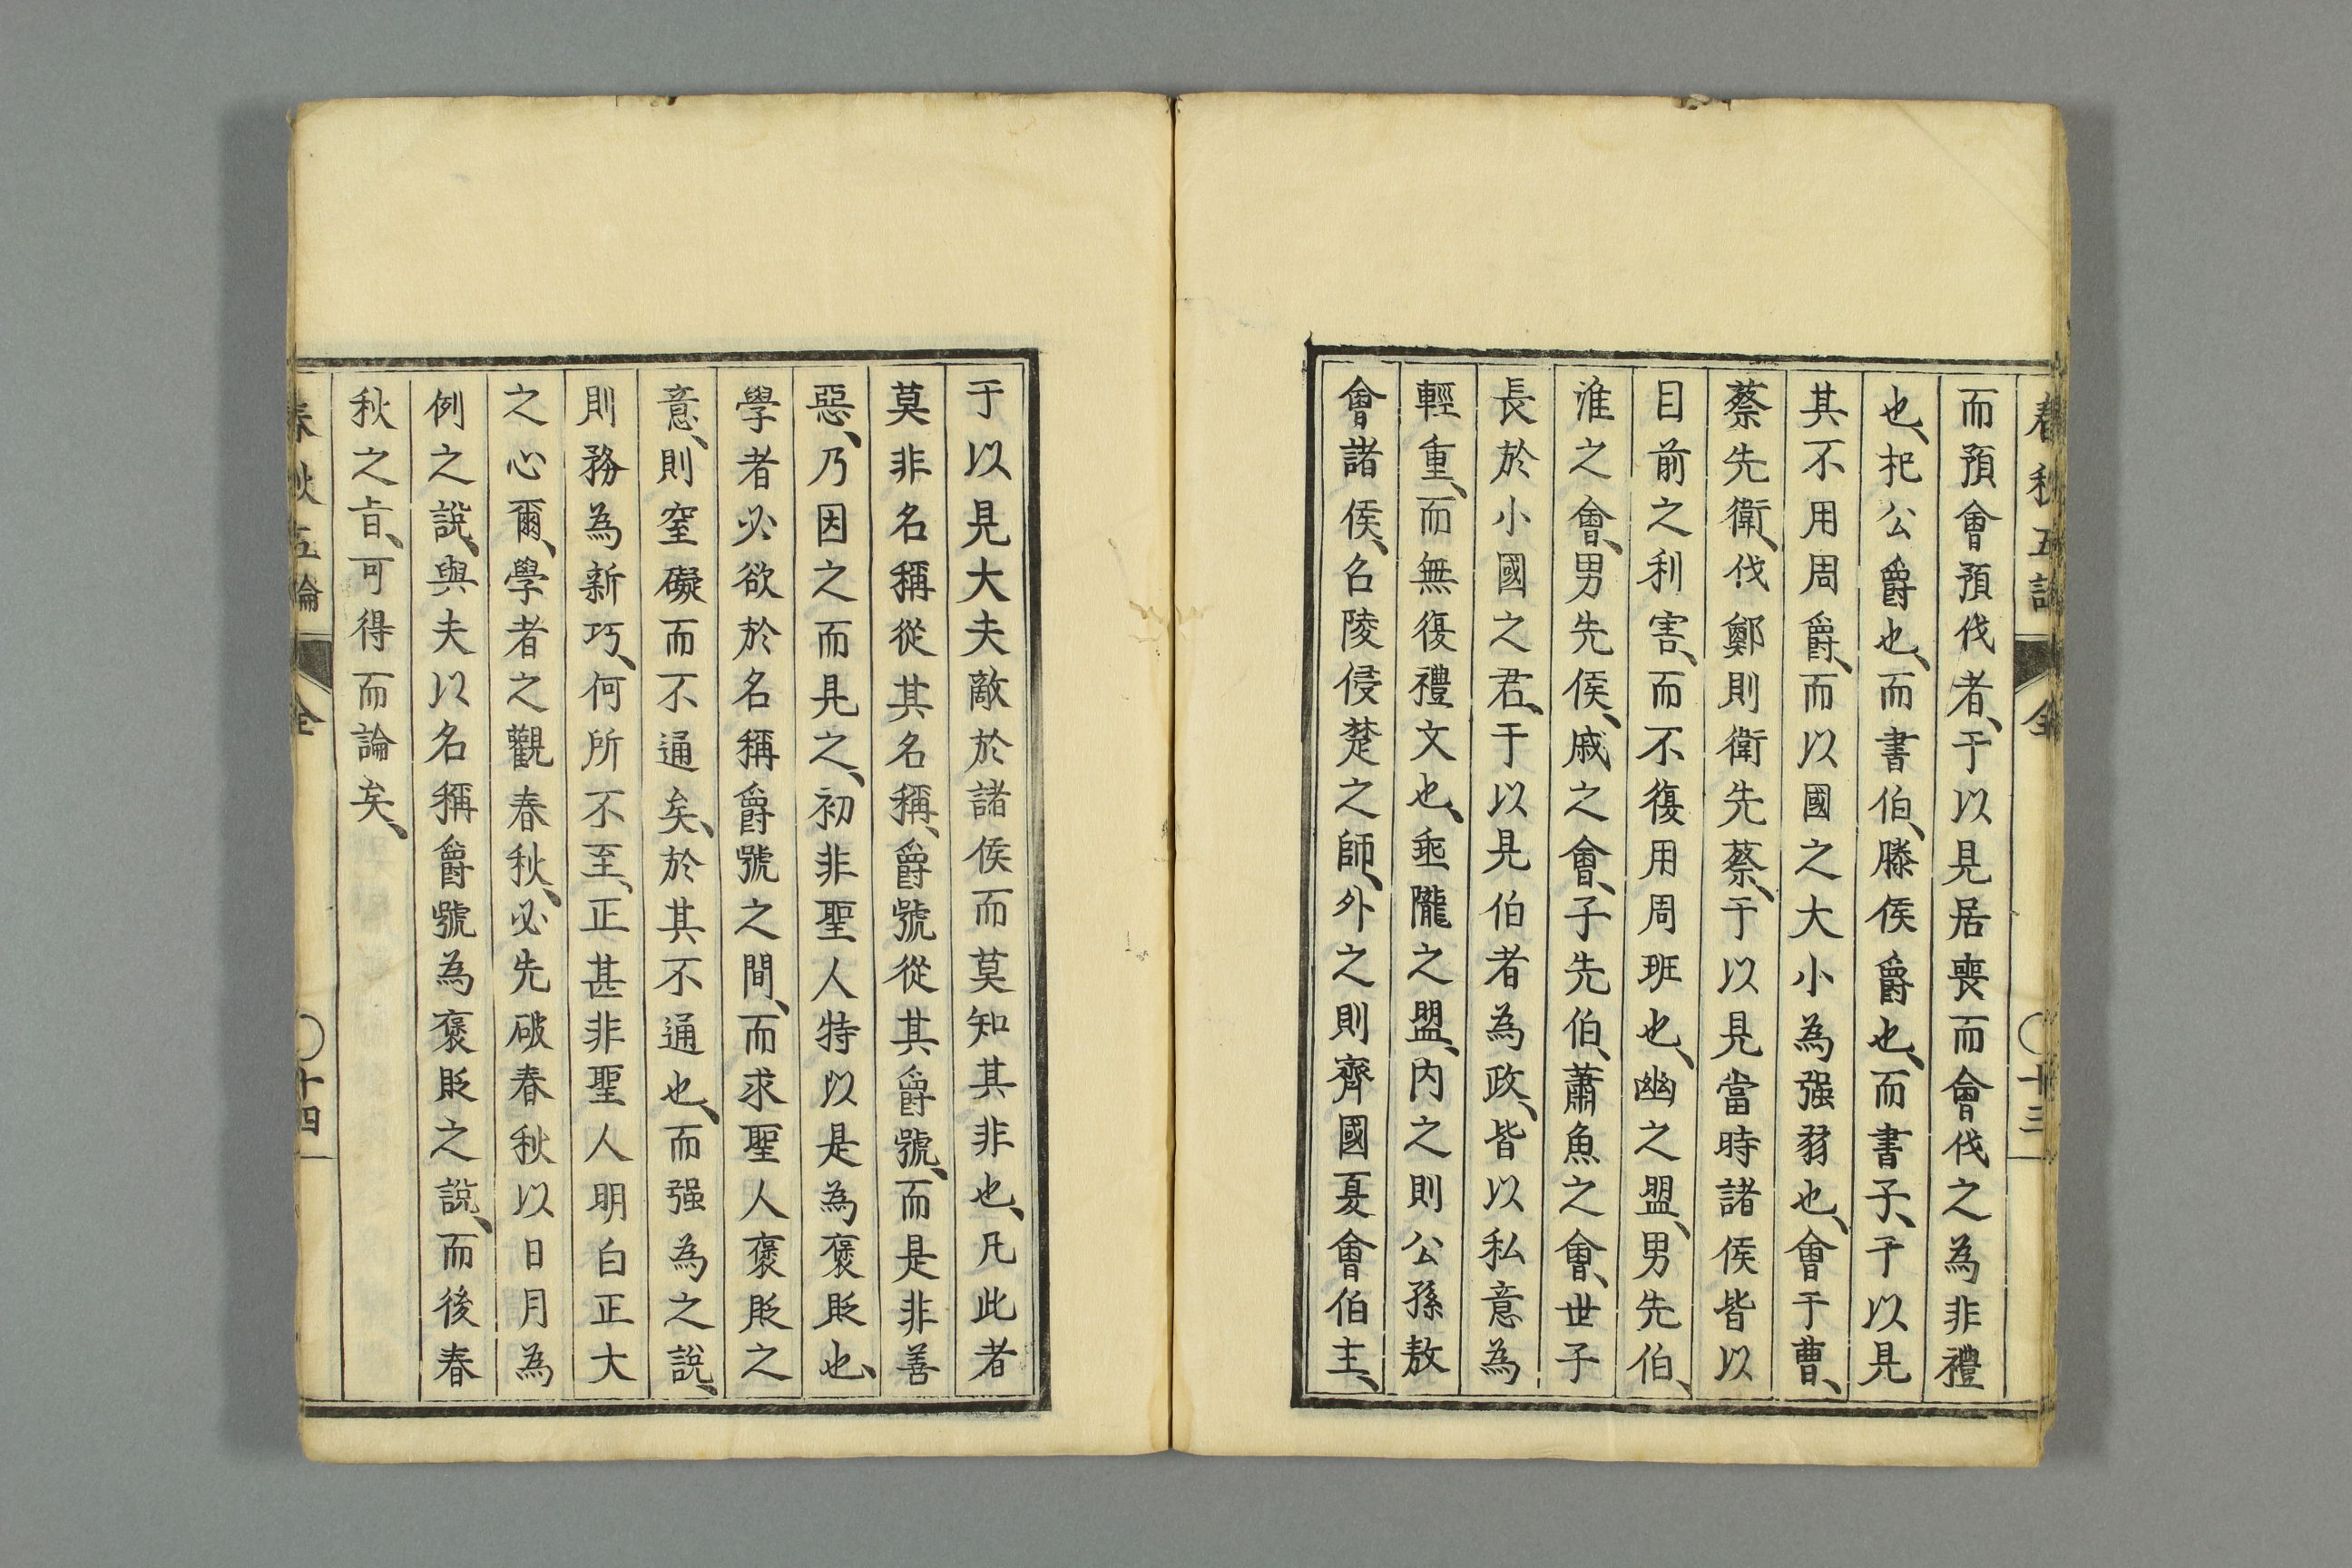 春秋五論 全 〇十三
而預會預伐者、于以見居喪而會伐之為非禮
也、杞公爵也、而書伯、滕侯爵也、而書子、于以見
其不用周爵、而以國之大小為强弱也、會于曹、
蔡先衛、伐鄭則衛先蔡、于以見當時諸侯皆以
目前之利害、而不復用周班也、幽之盟、男先伯、
淮之會、男先侯、戚之會、子先伯、蕭魚之會、世子
長於小國之君、于以見伯者為政、皆以私意為
輕重、而無復禮文也、垂隴之盟、内之則公孫敖
會諸侯、召陵侵楚之師、外之則齊國夏會伯主、
于以見大夫敵於諸侯而莫知其非也、凡此者
莫非名稱從其名稱、爵號從其爵號、而是非善
惡、乃因之而見之、初非聖人特以是為褒貶也、
學者必欲於名稱爵號之間、而求聖人褒貶之
意、則窒礙而不通矣、於其不通也、而强為之說、
則務為新巧、何所不至、正甚非聖人明白正大
之心爾、學者之觀春秋、必先破春秋以日月為
例之說、與夫以名稱爵號為褒貶之說、而後春
秋之旨、可得而論矣、
春秋五論 全 〇十四